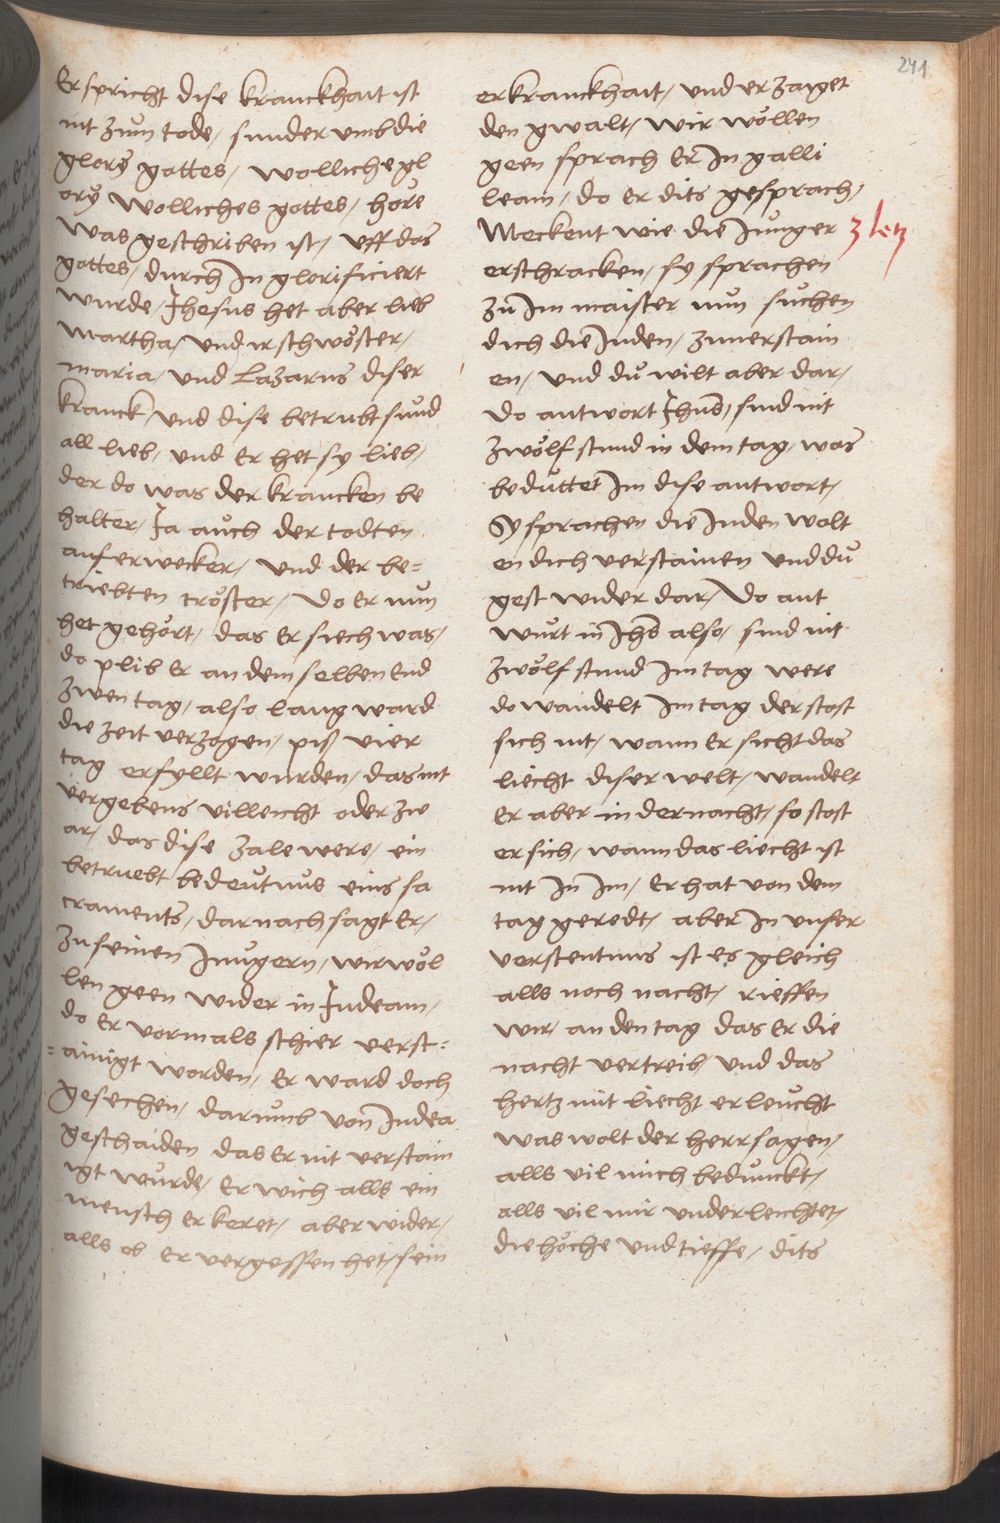 241
Er spricht dise kranckhait ist
nit zům tode, sunder umb die
glory gottes, wolliche gl
ory wolliches gottes, höre
was geschriben ist, uff das
gottes, durch In glorificiert
wurde, Jhesus het aber lieb
Martha, und ir schwöster,
maria, und Lazarus diser
kranck, und dise betrubt sind
all lieb, und Er het sy lieb,
der do was der krancken be
halter, Ja aůch der todten
auferwecker, und der be=
triebten tröster, do Er nun
het gehört, das Er siech was,
do plib Er an dem selben End
zwen tag, also lang ward
die zeit verzogen, piß vier
tag erfyllt wurden, das nit
vergebens villeicht oder zw
ar, das dise zale were, ein
betruebt bedeůtnus eins sa
craments, darnach sagt Er,
zu seinen Jungern, wir wöl
len geen wider in Judeam,
do Er vormals schier verst=
=ainigt worden, Er ward doch
gesechen, darumb von Judea
geschaiden das Er nit verstain
igt wurde, Er wich alls ein
mensch Er keret, aber wider,
alls ob er vergessen het, sein
er kranckhait, und erzaget
den gwalt, wir wöllen
geen sprach Er In galli
leam, do Er dits gesprach,
Meckent wie die Junger
3 letz
erschracken, sy sprachen
zů Im maister nun sůchen
dich die Juden, zuuerstain
en, und dů wilt aber dar,
do antwort Jhus, sind nit
zwölf stund in dem tag, was
bedůttet Im dise antwort,
Sy sprachen die Juden wolt
en dich verstainen und dů
gest wider dar, do ant
wůrt in Jhs also, sind nit
zwölf stund Im tag were
do wandelt Im tag der stost
sich nit, wann Er sicht das
liecht diser welt, wandelt
Er aber in der nacht, so stost
er sich, wann das liecht ist
nit In Im, Er hat von dem
tag geredt, aber In unser
verstentnus ist es gleich
alls noch nacht, rieffen
wir, an den tag das Er die
nacht vertreib und das
hertz mit liecht erleůcht
was wolt der herr sagen,
alls vil mich beduнckt,
alls vil mir underleichtet,
die höche und tieffe, dits